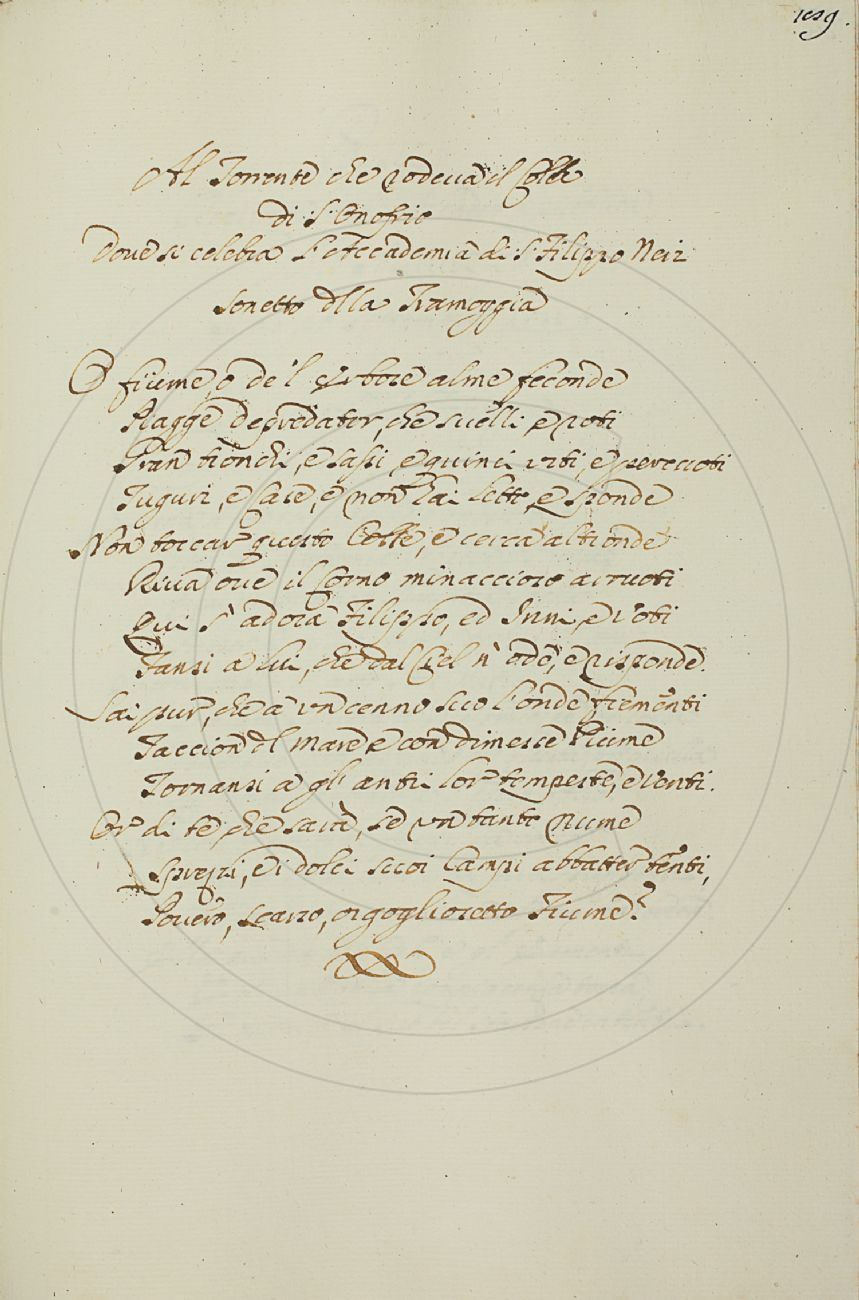 109.
Al Torrente che rodeva il Colle
di S. Onofrio
Dove si celebra l'Accademia di S. Filippo Neri
Sonetto della Tramoggia
O fiume, o de l' erbose alme feconde
Piagge depredator, che svelli, e roti
Gran tronchi, e sassi, e quinci urti, e percuoti
Tuguri, e Case, e non hai letto, e sponde
Non toccar questo Colle, e cerca altronde
Riva ove il Corno minaccioso arruoti
Qui s' adora Filippo, ed Inni, e Voti
Fansi a lui, che dal Ciel n' ode, e risponde.
Sai pur, che a un cenno suo l'onde frementi
Taccion del Mare e con dimesse spume
Tornansi a gl' antri lor tempeste, e venti.
Or di te che saria, se un tanto nume
Sprezzi, e i dolci suoi Campi abbatter tenti,
Povero, scarso, orgoglioretto Fiume?